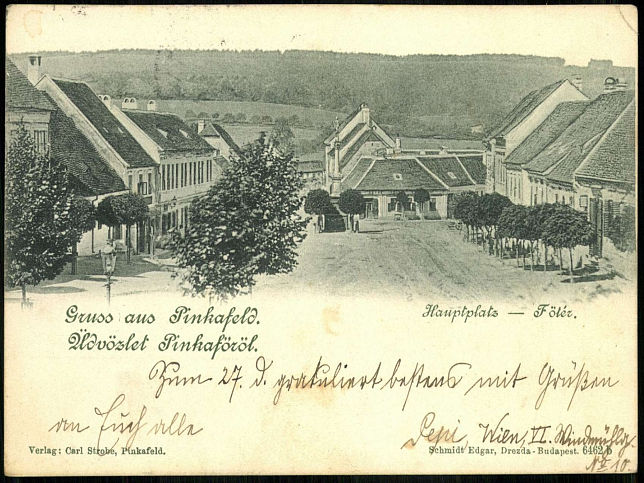 Gruss aus Pinkafeld.
Üdvözlet Pinkaföről.
Hauptplatz — Főtér.
Zum 27. d. gratuliert bestens mit Grüßen
an Euch alle
Pepi, Wien, VI. Windmühlg.
No 10.
Verlag: Carl Strobe, Pinkafeld.
Schmidt Edgar, Drezda-Budapest. 6462 b